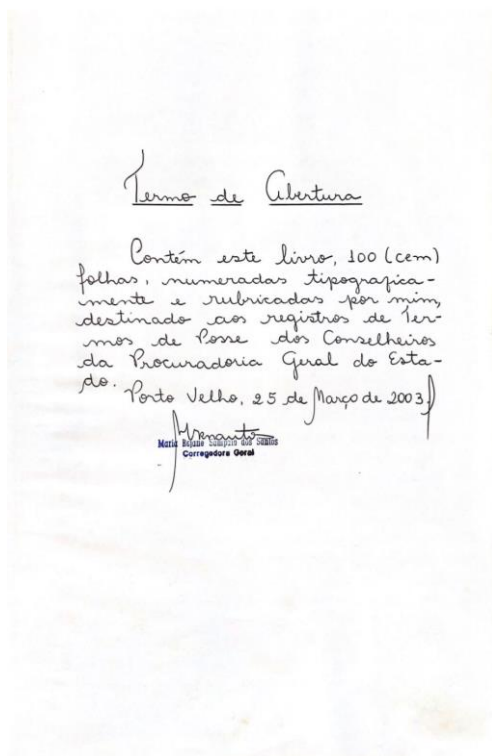 Termo de Abertura
Contém este livro, 100 (cem)
folhas, numeradas tipografica-
mente e rubricadas por mim,
destinado aos registros de Ter-
mos de Posse dos Conselheiros
da Procuradoria Geral do Esta-
do.
Porto Velho, 25 de Março de 2003
Maria Rejane Sampaio dos Santos
Corregedora Geral